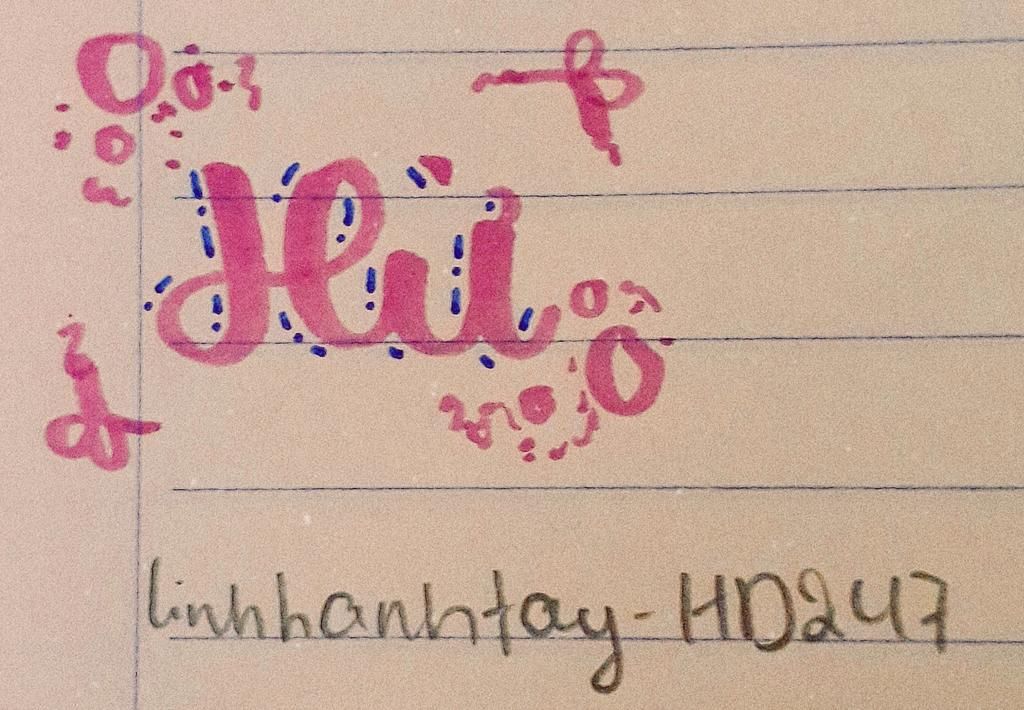 Hừ
linhhanhtay-HD247